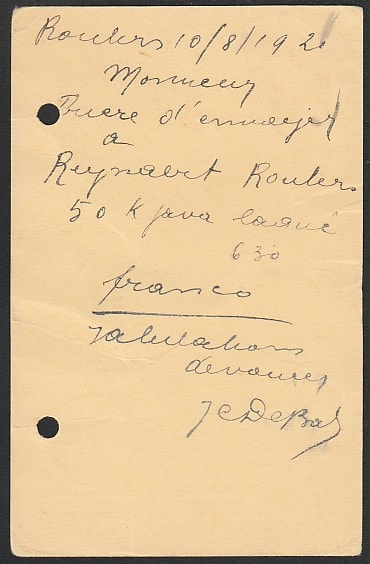 Roulers 10/8/192
Monsieur
Priere d'envoyer
a
Reynaert Roulers
50 K java laqué
630
franco
Salutations
devouees
J C De Bal